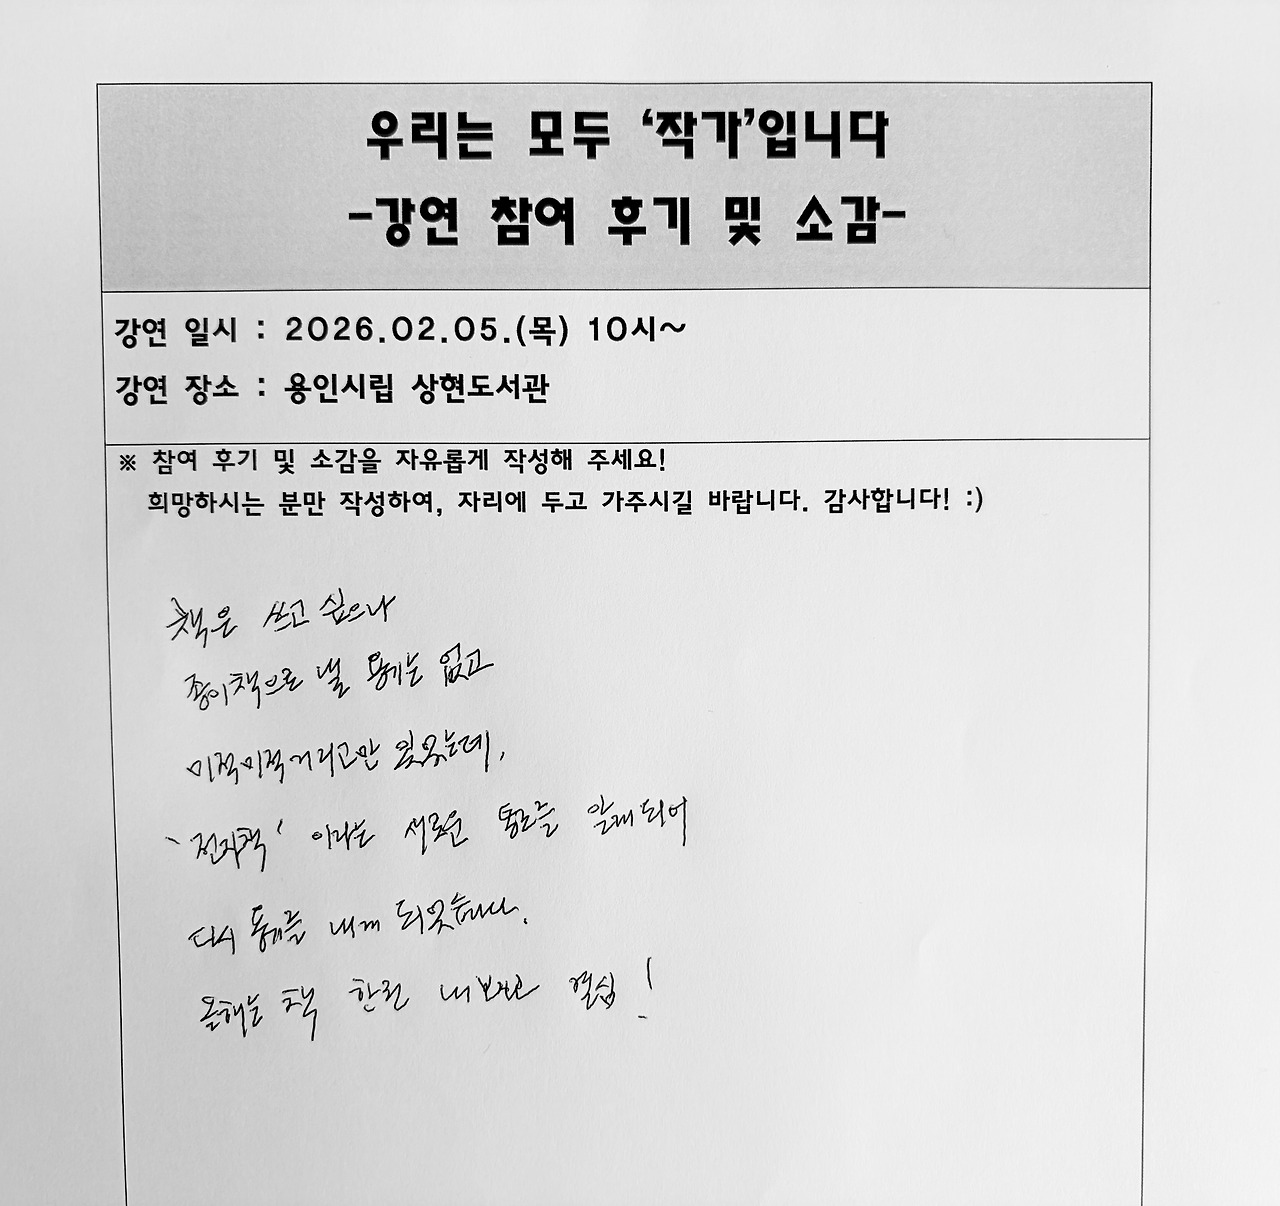 우리는 모두 '작가'입니다
-강연 참여 후기 및 소감-
강연 일시 : 2026.02.05.(목) 10시~
강연 장소 : 용인시립 상현도서관
※ 참여 후기 및 소감을 자유롭게 작성해 주세요!
희망하시는 분만 작성하여, 자리에 두고 가주시길 바랍니다. 감사합니다! :)
책은 쓰고 싶으나
종이책으로 낼 용기는 없고
미적미적거리고만 있었는데,
'전자책' 이라는 새로운 통로를 알게되어
다시 용기를 내게 되었습니다.
올해는 책 한권 내보려고 결심!